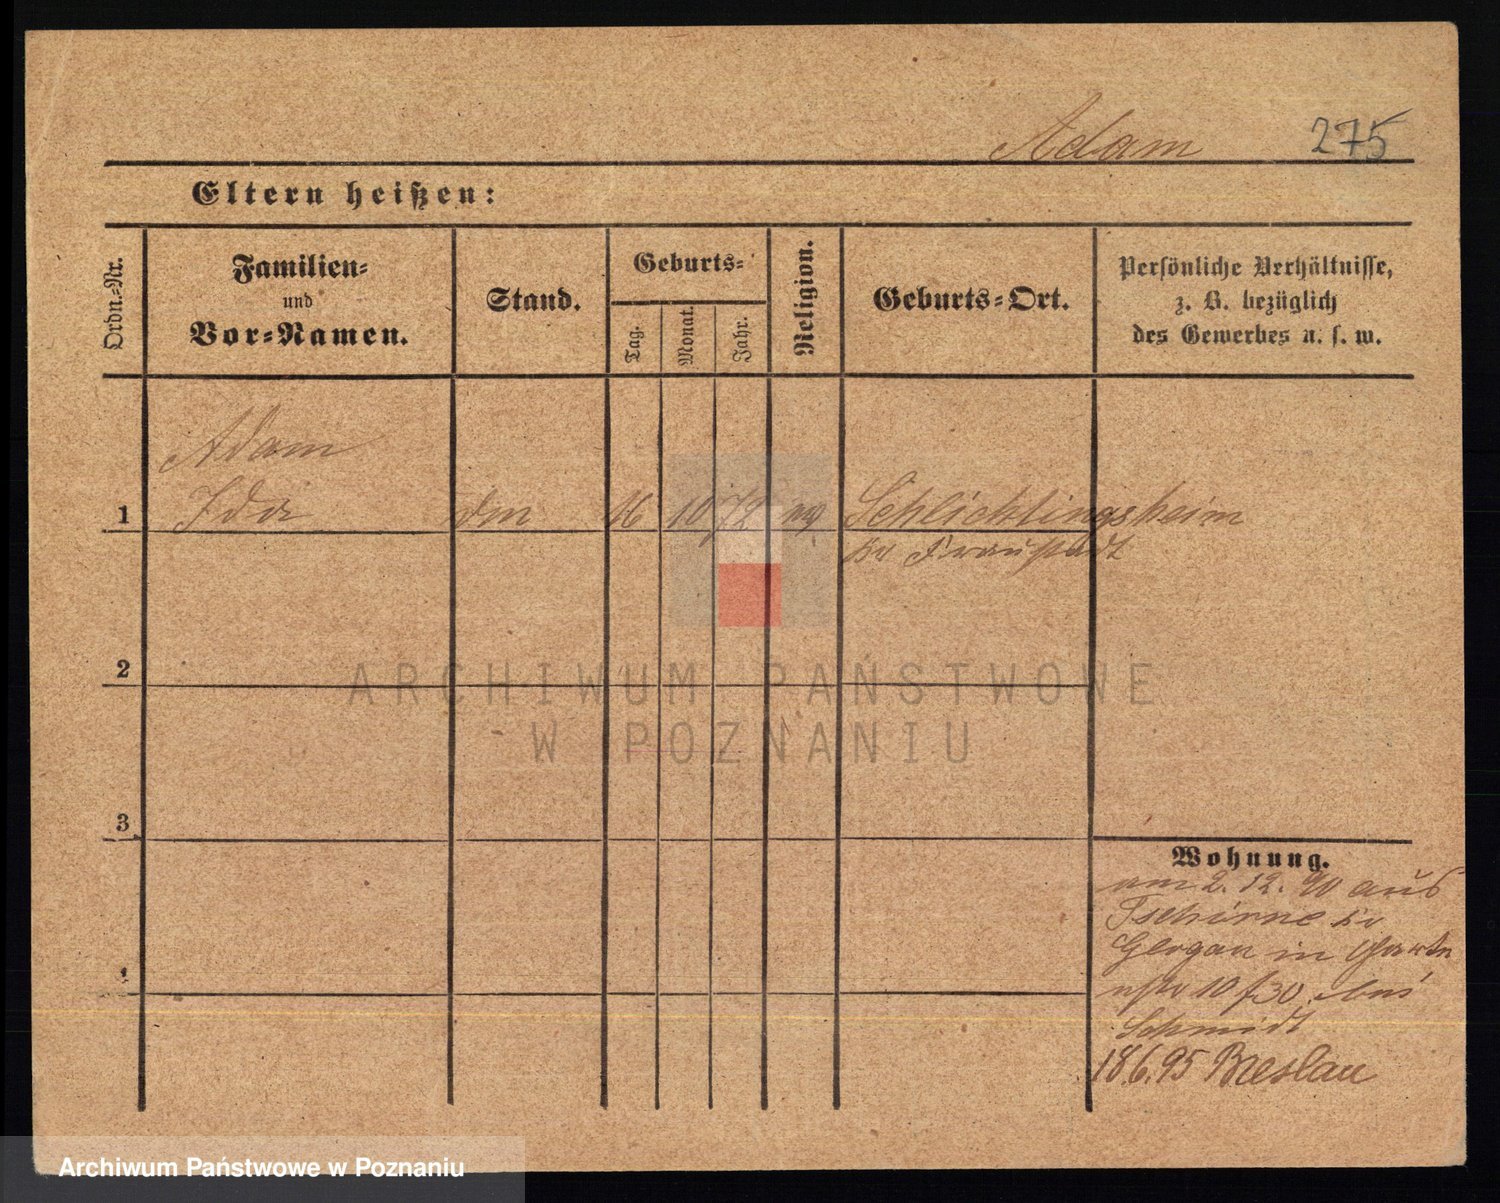 Adam 275
Eltern heißen:
Ordn.-Nr.
Familien-
und
Vor-Namen.
Stand.
Geburts-
Tag.
Monat.
Jahr.
Religion.
Geburts-Ort.
Persönliche Verhältnisse,
z. B. bezüglich
des Gewerbes u. s. w.
Adam
1 Ida 16 10 72 Schlichtingsheim
Kr Fraustadt
2
3
Wohnung.
am 2. 12. 90 aus
Tschirne Kr
Glogau in Garte
nstr 10 bei
Schmidt
18.6.95 Breslau
ARCHIWUM PAŃSTWOWE
W POZNANIU
Archiwum Państwowe w Poznaniu